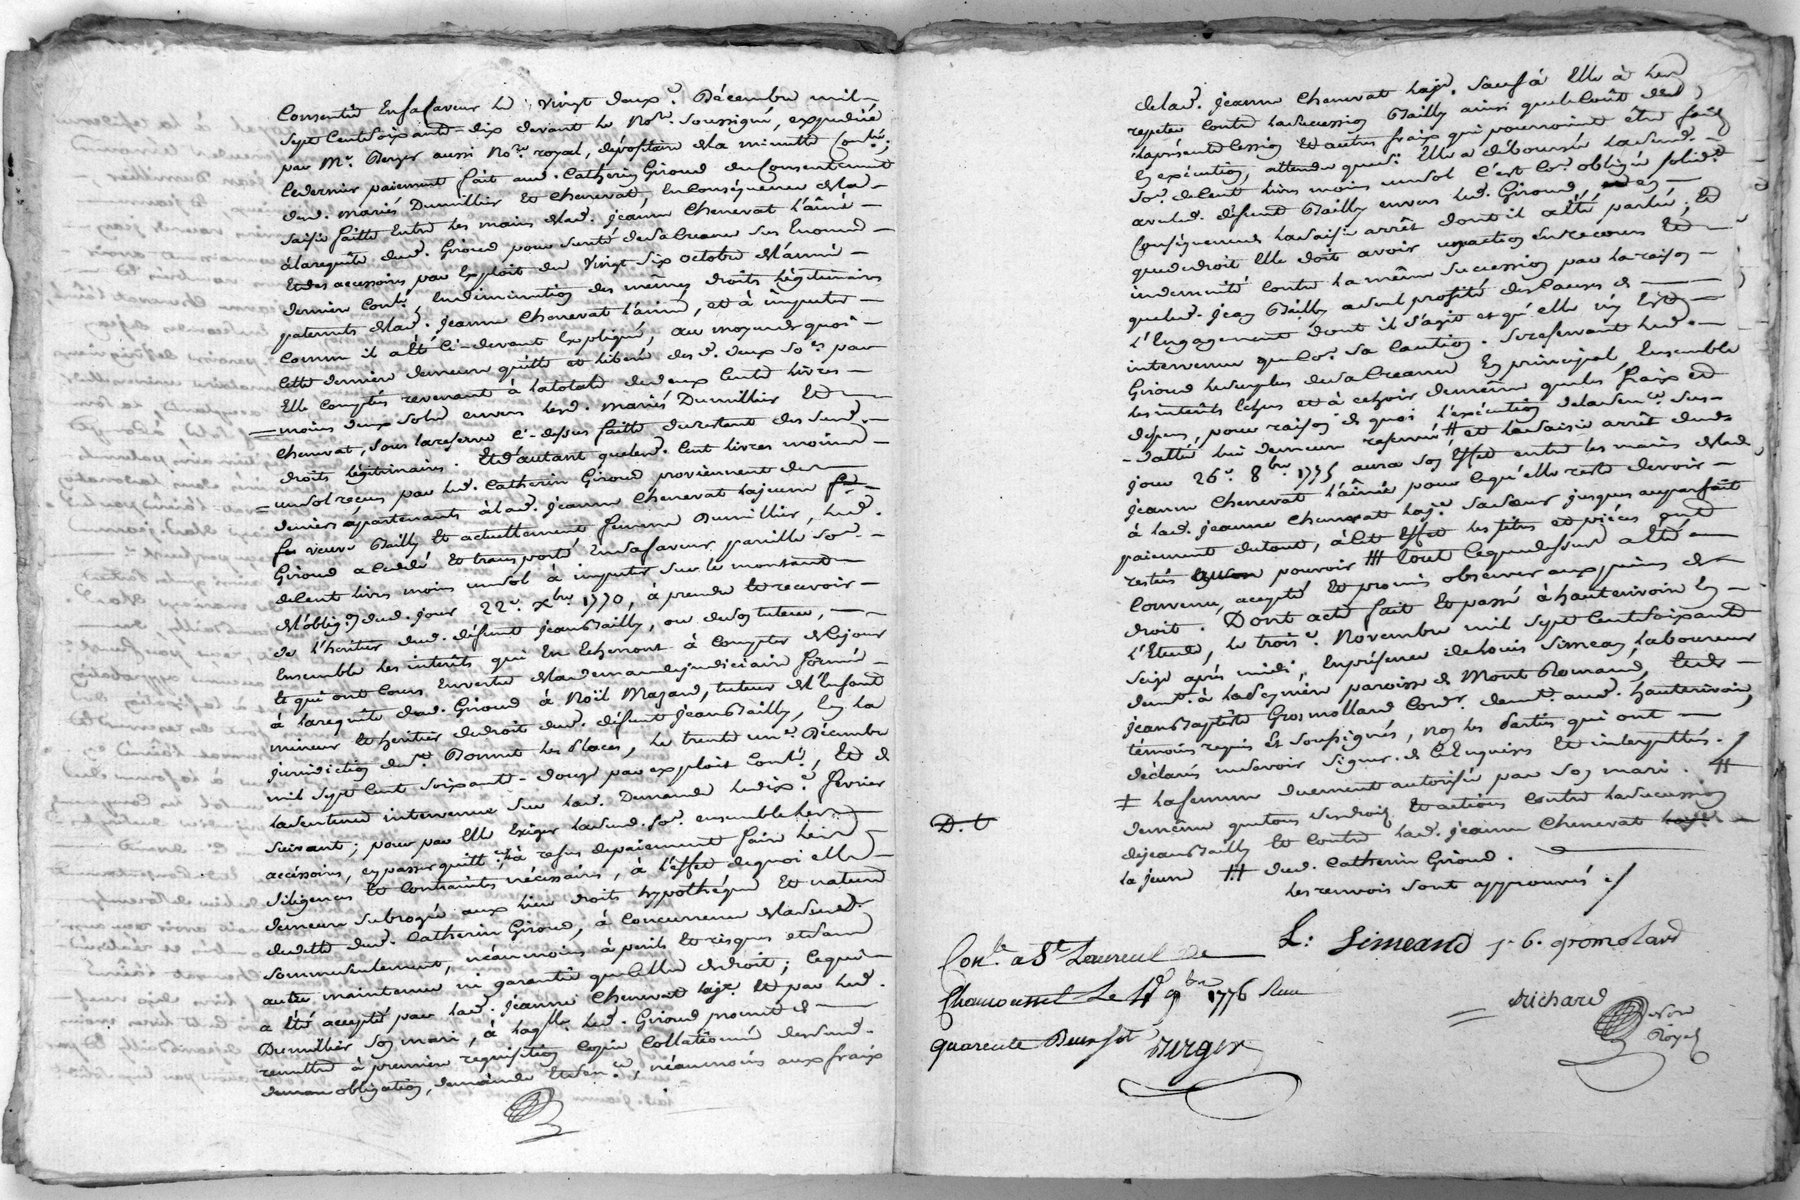 Consentie Ensafaveur Le vingt deuxe. Décembre mil
sept Centsoixante-dix devant Le Nore. Soussigné, expediée
par Me. Berger aussi Nore royal, dépositaire dela minutte Conlée;
Ledernier paiement fait aud. Catherin Giroud du Consentement
desd. mariés Dumillier Et Chenevat, En Conséquence dela
saisie faitte Entre Les mains delad. jeanne Chenevat l'ainé
àlarequête dud. Giroud pour sureté desa Creance sus Enoncée
Etdes accessoires par Exploit du Vingt six octobre del'année
derniere Conlé, Endiminution des mêmes droits Légitimaires
paternels delad. jeanne Chenevat l'ainée, et à imputer
Comme il a été Ci-devant Expliqué, au moyendequoi
Cette derniere demeure quitte et liberée des d. deux Soes par
Elle Comptées revenant à latotale dedeux Cents Livres
moins deux sols envers Lesd. mariés Dumillier Et
Chenevat, sous lareserve Ci-dessus faitte durestant des Susd.
droits légitimaires. Etd'autant quelesd. Cent livres moins
unsol reçues par Led. Catherin Giroud proviennent des
deniers appartenants àlad. jeanne Chenevat lajeune
veuve Bailly Et actuellement femme Dumillier, Led.
Giroud a Cedé Et transporté Ensafaveur pareille Soe.
deCent livres moins unsol à imputer sur le montant
del'oblign dud. jour 22e. xbre 1770, à prendre Et recevoir
de l'héritier dud. défunt jeanBailly, ou deson tuteur,
Ensemble les interêts qui En Echerront à Compter deCejour
Et qui ont Cours Envertu delademandejudiciaire formée
à larequête dud. Giroud à Noël Magard, tuteur del'Enfant
mineur Et héritier dedroit dud. défunt jeanBailly, En la
jurisdiction de Bonnet Les Places, Le trente une. Décembre
mil sept Cent soixante-douze par exploit Conlé, Et de
lasentence intervenue sur lad. Demande Ledixe. fevrier
suivant; pour par Elle Exiger lasusd. Soe. ensemble les
accéssoires, en passer quittce, à refus depaiement faire Les
diligences Et Contraintes nécessaires, à l'effet dequoi elle
demeure subrogée aux Lieu droits hypothéque Et nature
dedette dud. Catherin Giroud, à Concurrence delasusd.
somme seulement, néanmoins à perils Et risques et sans
autre maintenue ni garantie que Celle dedroit; Cequi
a été accepté par lad. jeanne Chenevat laje. Et par Led.
Dumillier son mari, à laqlle Led. Giroud promet de
remettre à premiere requisition Copie Collationée des susd.
obligation, demande Etsence, néanmoins aux frais
delad. jeanne Chenevat laje. Sauf à Elle à Les
repeter Contre lasuccession Bailly ainsi queleCoût des
laprésente Cession Et autres fraix qui pourroient être faits
En exécution, attendu que si Elle a déboursée lasusd.
Soe. deCent livres moins unsol C'est Coe. obligée solide.
avec led. défunt Bailly envers Led. Giroud, et en
Conséquence lasaisie arrêt dontil a été parlé; Et
que dedroit Elle doit avoir sonaction Enrecours Et
indemnité Contre la même succession par la raison
queled. jean Bailly aseul profité des Causes de
l'Engagement dont il s'agit et qu'elle n'y Est
intervenue que Coe. sa Caution. Se reservant Led.
Giroud Lesurplus desa Creance En principal, Ensemble
les interêts Echus et à echoir demême queles fraix et
depens, pour raison de quoi l'exécution deladsence sus-
datée lui demeure reservée # et lasaisie arrêt dudt
jour 26e. 8bre 1775 aura son Effet entre les mains delad.
jeanne Chenevat l'ainée pour Cequ'elle reste devoir
à lad. jeanne Chenevat laje. sasœur jusques auparfait
paiement dutout, à Cet Effet les titres et piéces sont
restés pouvoir ### Tout Cequedessus a été
Convenu, accepté Et promis observer aux peines de
droit. Dont acte fait Et passé à hauterivoire En
l'Etude, Le troise. Novembre mil sept Centsoixante
seize après midi, Enprésence deLouis Simean, Laboureur
demt. à laSeyniere paroisse de Mont Romand, Etde
jeanBaptiste Grosmolland Cordr. demt. aud. hauterivoire,
témoins requis Et soussignés, non les parties qui ont
déclarés nesavoir signer de ce Enquises Et interpellées.
‡ lafemme duement autorisée par son mari. #
demême quetous sesdroits Et actions Contre lasuccession
dejeanBailly Et Contre lad. jeanne Chenevat
la jeune ### dud. Catherin Giroud.
les renvois sont approuvés ./
D. U
L: Simeand j. b. gromolard
Conle a St Laurent de
Chamousset Le 14 9bre 1776 Reçu
quarente Deux sols Berger
Richard
Nore
Royal